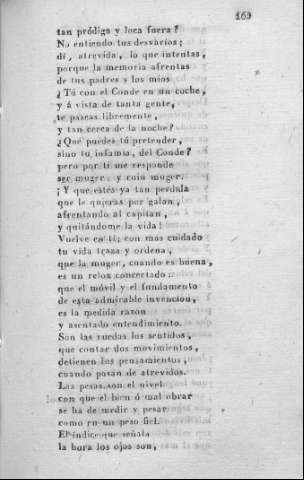 169
tan pródiga y loca fuera?
No entiendo tus desvaríos;
di, atrevida, lo que intentas,
porque la memoria afrentas
de tus padres y los mios
¿Tú con el Conde en un coche,
y á vista de tanta gente,
te paseas libremente,
y tan cerca de la noche?
¿Qué puedes tú pretender,
sino tu infamia, del Conde?
pero por tí me responde
ser muger, y ruin muger.
¡Y que estés ya tan perdida
que le quieras por galan,
afrentando al capitan,
y quitándome la vida!
Vuelve en tí; con mas cuidado
tu vida traza y ordena,
que la muger, cuando es buena,
es un relox concertado:
que el móvil y el fundamento
de esta admirable invencion,
es la medida razon
y asentado entendimiento.
Son las ruedas los sentidos,
que contar dos movimientos,
detienen los pensamientos,
cuando pasan de atrevidos.
Las pesas son el nivel
con que el bien ó mal obrar
se ha de medir y pesar
como en un peso fiel.
El índice que señala
la hora los ojos son,